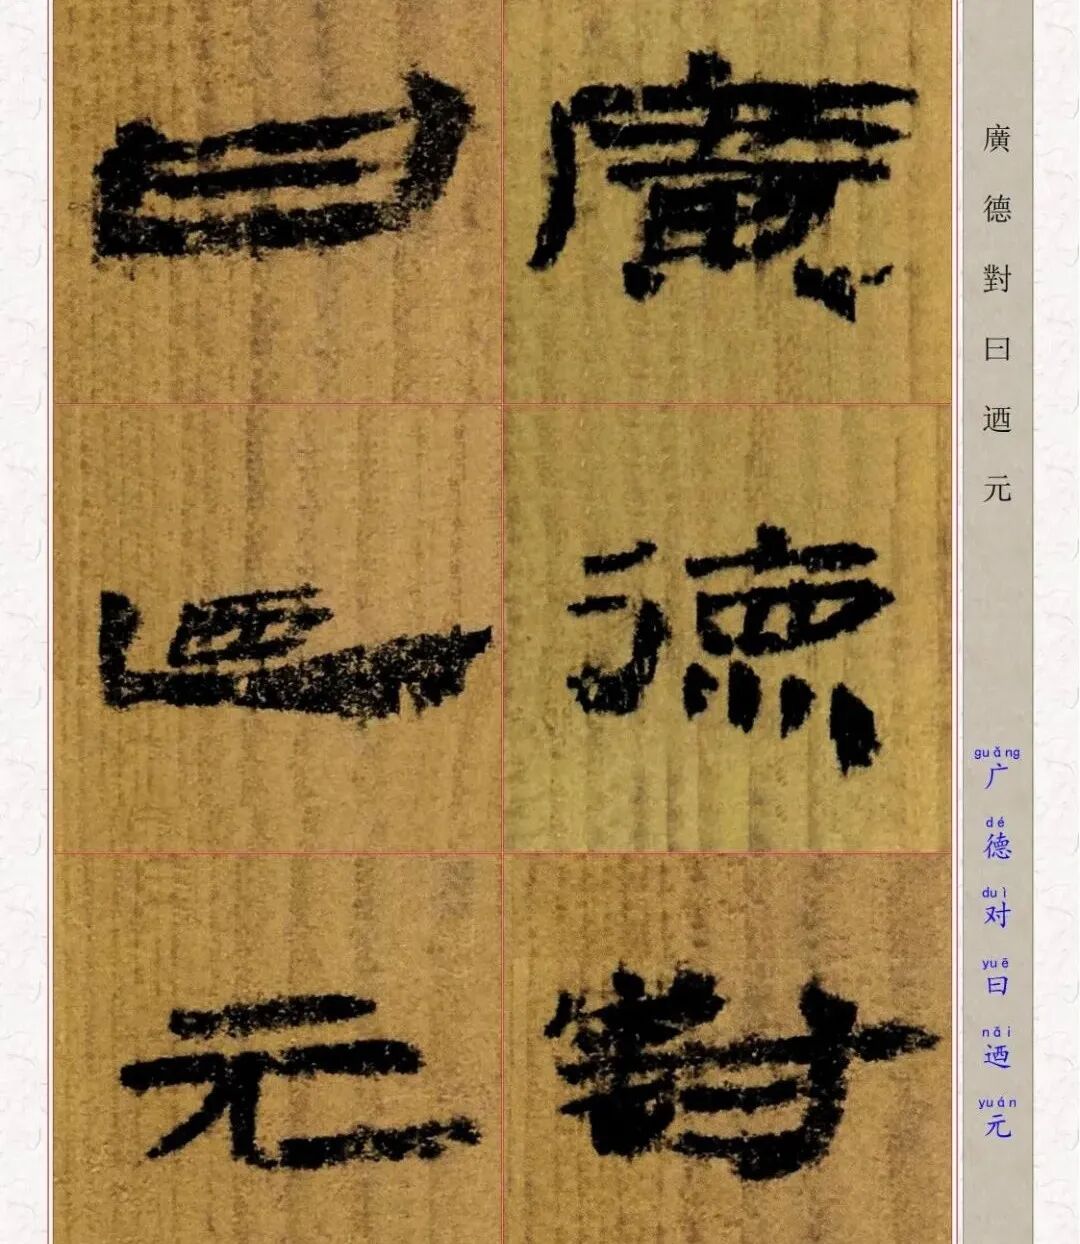 廣德對
曰迺元
廣德對曰迺元
guǎng dé duì yuē nǎi yuán
广德对曰迺元